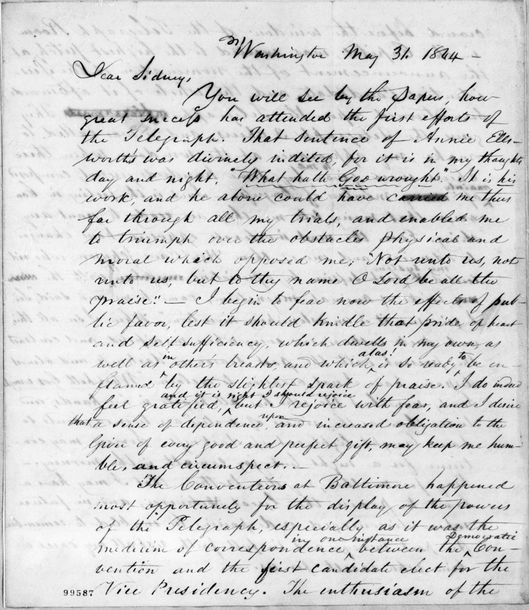 Washington May 31. 1844 -
Dear Sidney,
You will see by the Papers, how
great success has attended the first efforts of
the Telegraph. That sentence of Annie Ells-
worth's was divinely indited, for it is in my thoughts
day and night. "What hath God wrought. It is his
work, and he alone could have carried me thus
far through all my trials, and enabled me
to triumph over the obstacles physical and
moral which opposed me. Not unto us, not
unto us, but to thy name O Lord be all the
praise." — I begin to fear now the effects of pub-
lic favor, lest it should kindle that pride of heart
and self sufficiency, which dwells in my own, as
well as in others breasts, and which, alas! is so ready to be in
flamed by the slightest spark of praise. I do indeed
feel gratified, and it is right I should rejoice but I rejoice with fear, and I desire
that a sense of dependence upon and increased obligation to the
Giver of every good and perfect gift, may keep me hum-
ble, and circumspect. -
The Conventions at Baltimore happened
most opportunely for the display of the powers
of the Telegraph, especially as it was the
medium of correspondence in one instance between the Democratic Con-
vention and the first candidate elect for the
Vice Presidency. The enthusiasm of the
99587